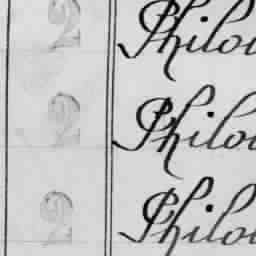 2 Philo
2 Philo
2 Philo